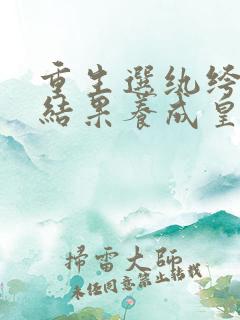 重生選紈絝
結果養成皇
掃雷大師
未經同意禁止轉載